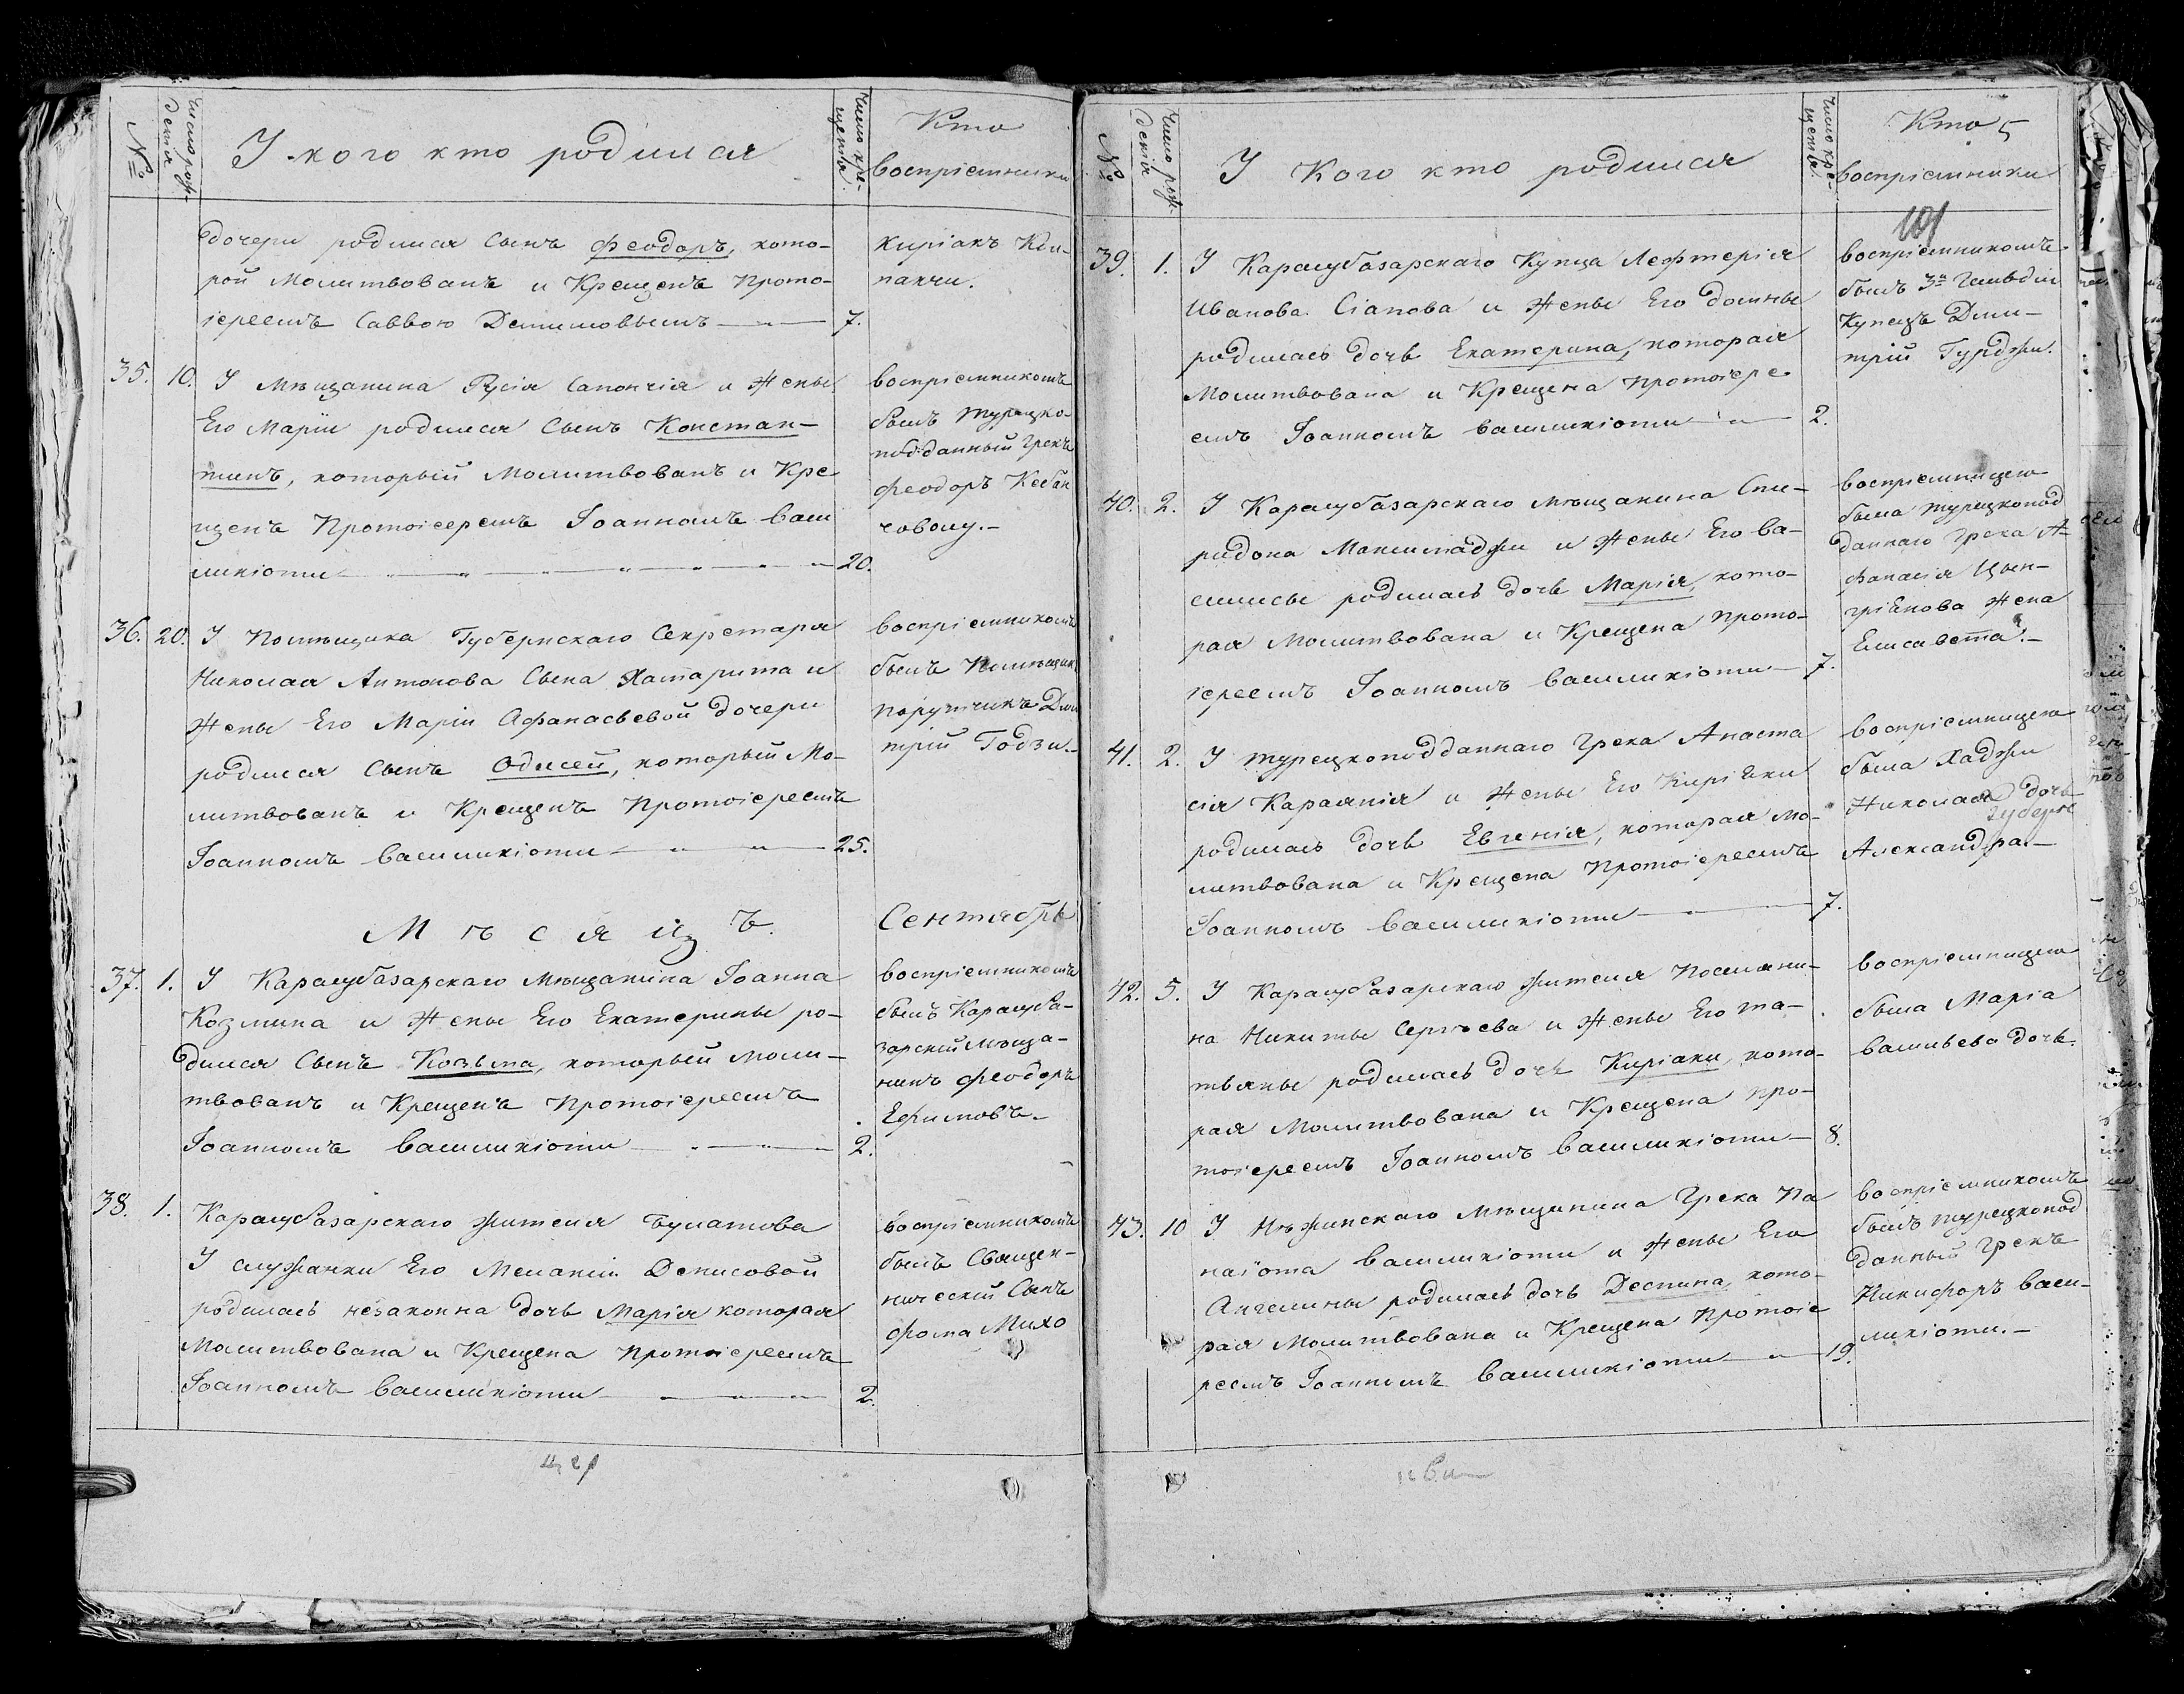 №
Число рож-
денія
У кого кто родился
Число кре-
щенія.
Кто
воспріемники
дочери родился Сынъ Феодоръ, кото-
рой Молитвованъ и Крещенъ Прото-
іереемъ Саввою Демимовымъ 7.
Киріакъ
пакчи.
35. 10. У Мѣщанина Русія Сапонгія и Жены
Его Маріи родился Сынъ Констан-
тинъ, который Молитвованъ и Кре
щенъ Протоіереемъ Іоанномъ Васи
ликіоти 20.
воспріемникомъ
былъ турецко-
подданный Грекъ
Феодоръ
36. 20. У Помѣщика Губернскаго Секретаря
Николая Антонова Сына Хамарита и
Жены Его Маріи Афанасьевой дочери
родился Сынъ Одисей, который Мо-
литвованъ и Крещенъ Протоіереемъ
Іоанномъ Василикіоти 25.
воспріемникомъ
былъ Помѣщикъ
поручикъ Дми
трій Годзи.-
Мѣсяцъ. Сентябрь
37. 1. У Карасубазарскаго Мѣщанина Іоанна
Козмина и Жены Его Екатерины ро-
дился Сынъ Козьма, который моли-
твованъ и Крещенъ Протоіереемъ
Іоанномъ Василикіоти 2.
воспріемникомъ
былъ Карасуба-
зарскій мѣща-
нинъ Феодоръ
Ефимовъ.-
38. 1. Карасубазарскаго жителя Булатова
У служанки Его Меланіи Денисовой
родилась незаконна дочь Марія которая
Молитвована и Крещена Протоіереемъ
Іоанномъ Василикіоти 2.
воспріемникомъ
былъ Священ-
ническій Сынъ
Фома Михо
№
Число рож-
денія
У Кого кто родился
Число кре-
щенія.
Кто 5
воспріемники
101
39. 1. У Карасубазарскаго Купца Лефтерія
Иванова Сіапова и Жены Его Домны
родилась дочь Екатерина, которая
Молитвована и Крещена протоіере-
емъ Іоанномъ Василикіоти 2.
воспріемникомъ
былъ 3й Гильдіи
Купецъ Дми-
трій Гурджи.
40. 2. У Карасубазарскаго мѣщанина Спи-
ридона Манитаджи и Жены Его Ва-
силисы родилась дочь Марія, кото-
рая молитвована и Крещена прото-
іереемъ Іоанномъ Василикіоти 7.
воспріемницею
была турецкопод
даннаго Грека А-
фанасія Цын-
гріенова Жена
Елисавета.-
41. 2. У турецкоподданнаго Грека Анаста
сія Караянія и Жены Его Киріеки
родилась дочь Евгенія, которая мо-
литвована и Крещена Протоіереемъ
Іоанномъ Василикіоти 7.
воспріемницею
была Хаджи
Николая дочь
Александра.-
42. 5. У Карасубазарскаго жителя Поселяни-
на Никиты Сергѣева и Жены Его Та-
тьяны родилась дочь Киріаки, кото-
рая Молитвована и Крещена про-
тоіереемъ Іоанномъ Василикіоти 8.
воспріемницею
была Маріа
Васильева дочь.
43. 10 У Нѣжинскаго мѣщанина Грека Па
наіота Василикіоти и Жены Его
Ангелины родилась дочь Деспина, кото-
рая Молитвована и Крещена Протоіе
реемъ Іоанномъ Василикіоти 19.
воспріемникомъ
былъ турецкопод
данный Грекъ
Никифоръ Васи-
ликіоти.-